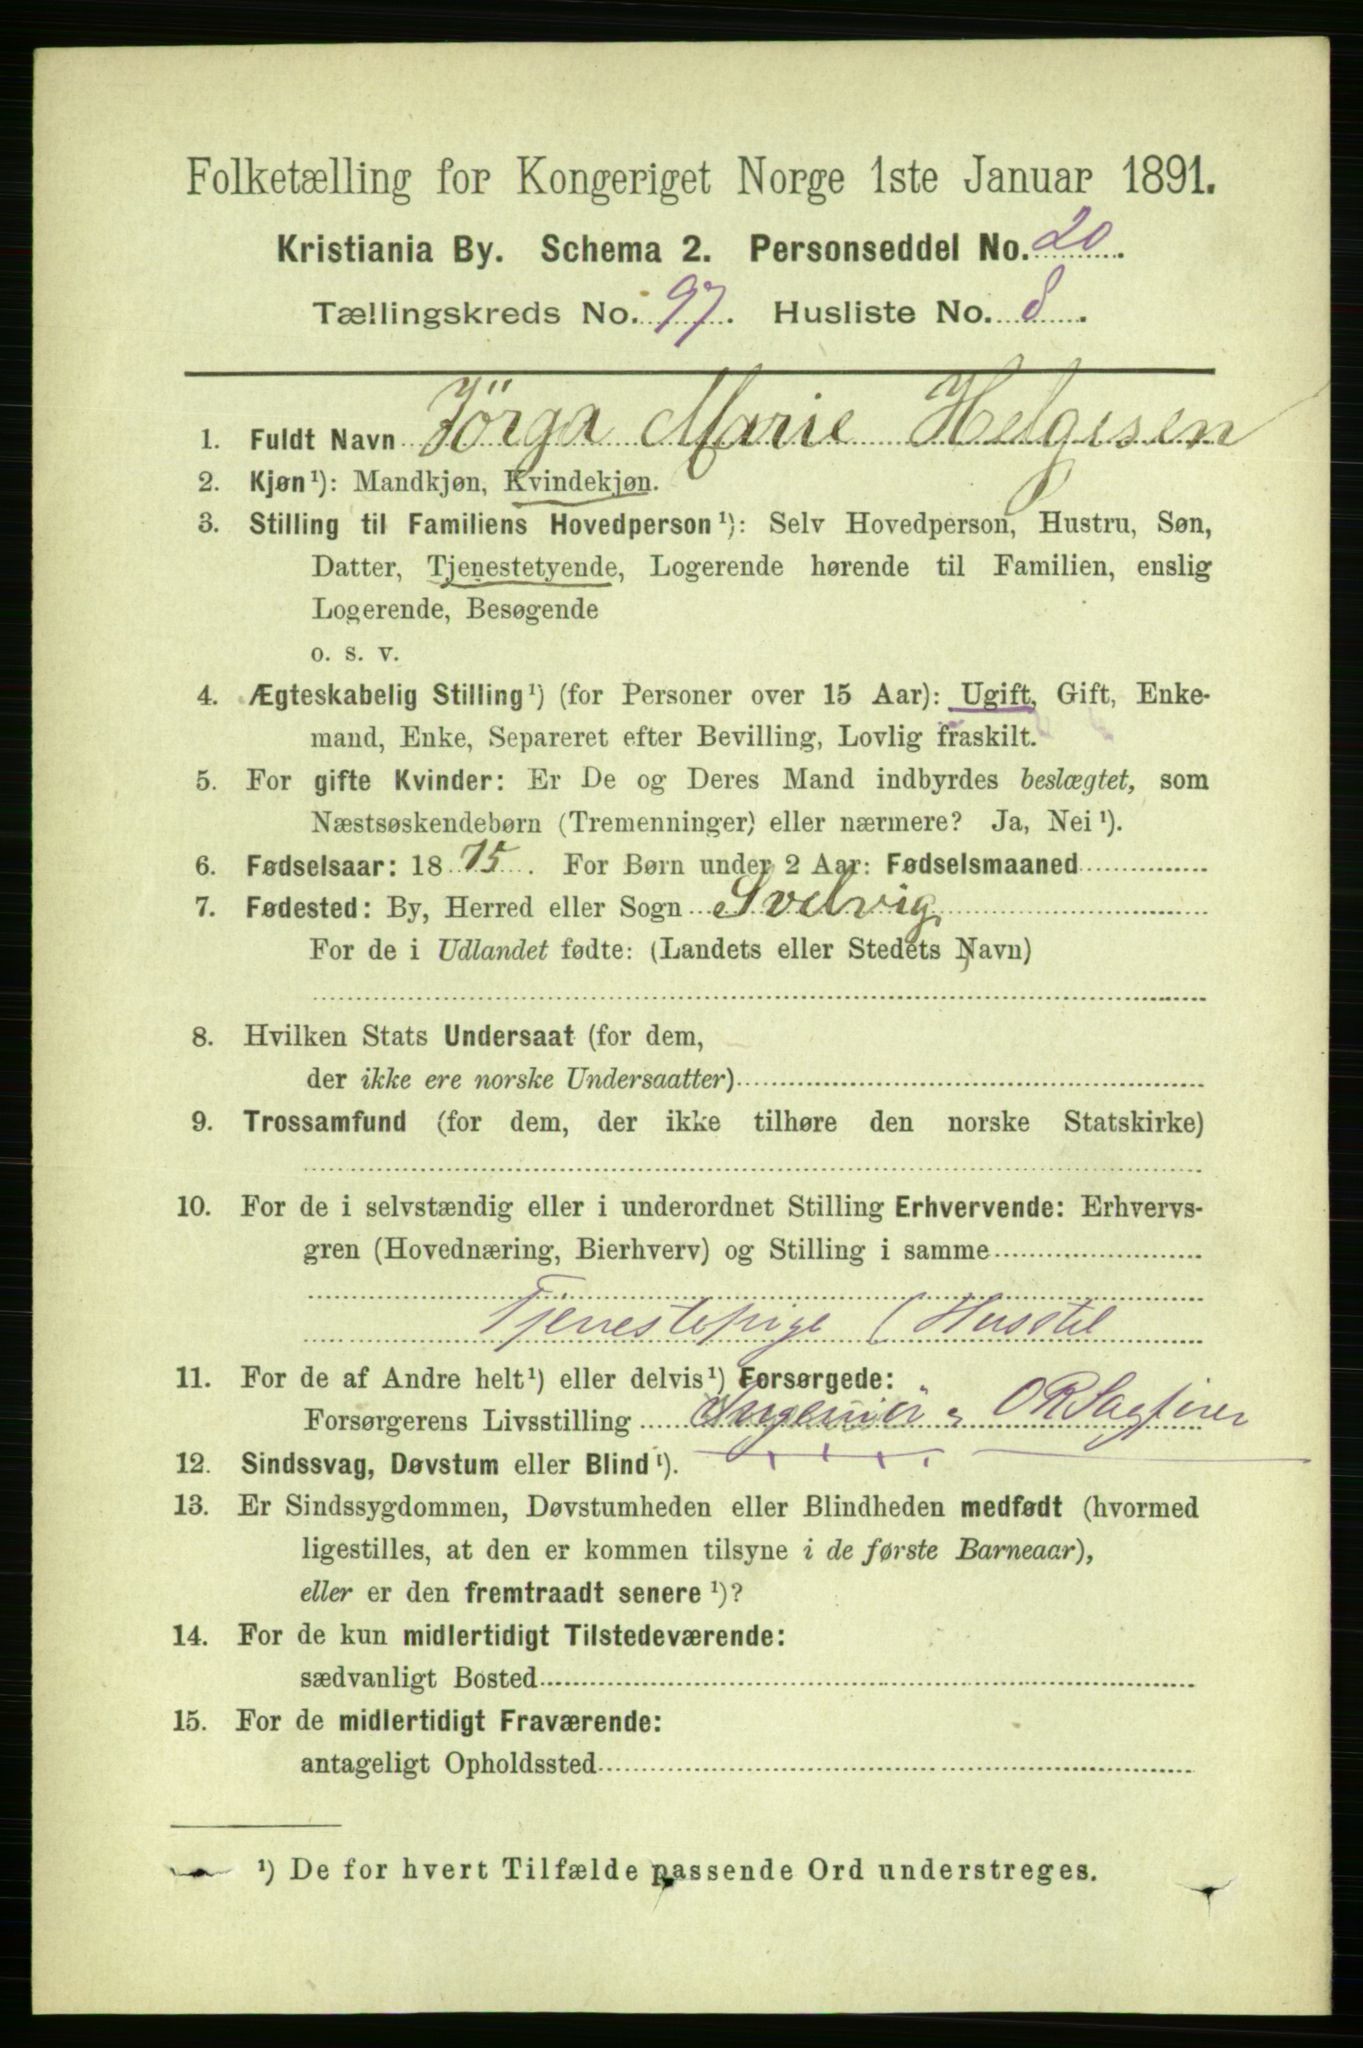 Folketælling for Kongeriget Norge 1ste Januar 1891.
Kristiania By. Schema 2. Personseddel No. 20.
Tællingskreds No. 97. Husliste No. 8.
1. Fuldt Navn Jörga Marie Helgesen
2. Kjøn¹): Mandkjøn, Kvindekjøn.
3. Stilling til Familiens Hovedperson¹): Selv Hovedperson, Hustru, Søn,
Datter, Tjenestetyende, Logerende hørende til Familien, enslig
Logerende, Besøgende
o. s. v.
4. Ægteskabelig Stilling¹) (for Personer over 15 Aar): Ugift, Gift, Enke-
mand, Enke, Separeret efter Bevilling, Lovlig fraskilt.
5. For gifte Kvinder: Er De og Deres Mand indbyrdes beslægtet, som
Næstsøskendebørn (Tremenninger) eller nærmere? Ja, Nei¹).
6. Fødselsaar: 1875. For Børn under 2 Aar: Fødselsmaaned
7. Fødested: By, Herred eller Sogn Svelvig
For de i Udlandet fødte: (Landets eller Stedets Navn)
8. Hvilken Stats Undersaat (for dem,
der ikke ere norske Undersaatter)
9. Trossamfund (for dem, der ikke tilhøre den norske Statskirke)
10. For de i selvstændig eller i underordnet Stilling Erhvervende: Erhvervs-
gren (Hovednæring, Bierhverv) og Stilling i samme
Tjenestepige (Husstel
11. For de af Andre helt¹) eller delvis¹) Forsørgede:
Forsørgerens Livsstilling Ingeniör OR Sagfører
12. Sindssvag, Døvstum eller Blind¹).
13. Er Sindssygdommen, Døvstumheden eller Blindheden medfødt (hvormed
ligestilles, at den er kommen tilsyne i de første Barneaar),
eller er den fremtraadt senere¹)?
14. For de kun midlertidigt Tilstedeværende:
sædvanligt Bosted
15. For de midlertidigt Fraværende:
antageligt Opholdssted
¹) De for hvert Tilfælde passende Ord understreges.